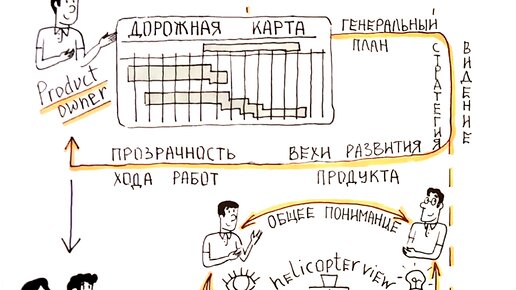 ДОРОЖНАЯ КАРТА
ГЕНЕРАЛЬНЫЙ
ПЛАН
СТРАТЕГИЯ
ВИДЕНИЕ
Product
owner
ПРОЗРАЧНОСТЬ
ХОДА РАБОТ
ВЕХИ РАЗВИТИЯ
ПРОДУКТА
ОБЩЕЕ ПОНИМАНИЕ
helicopter view